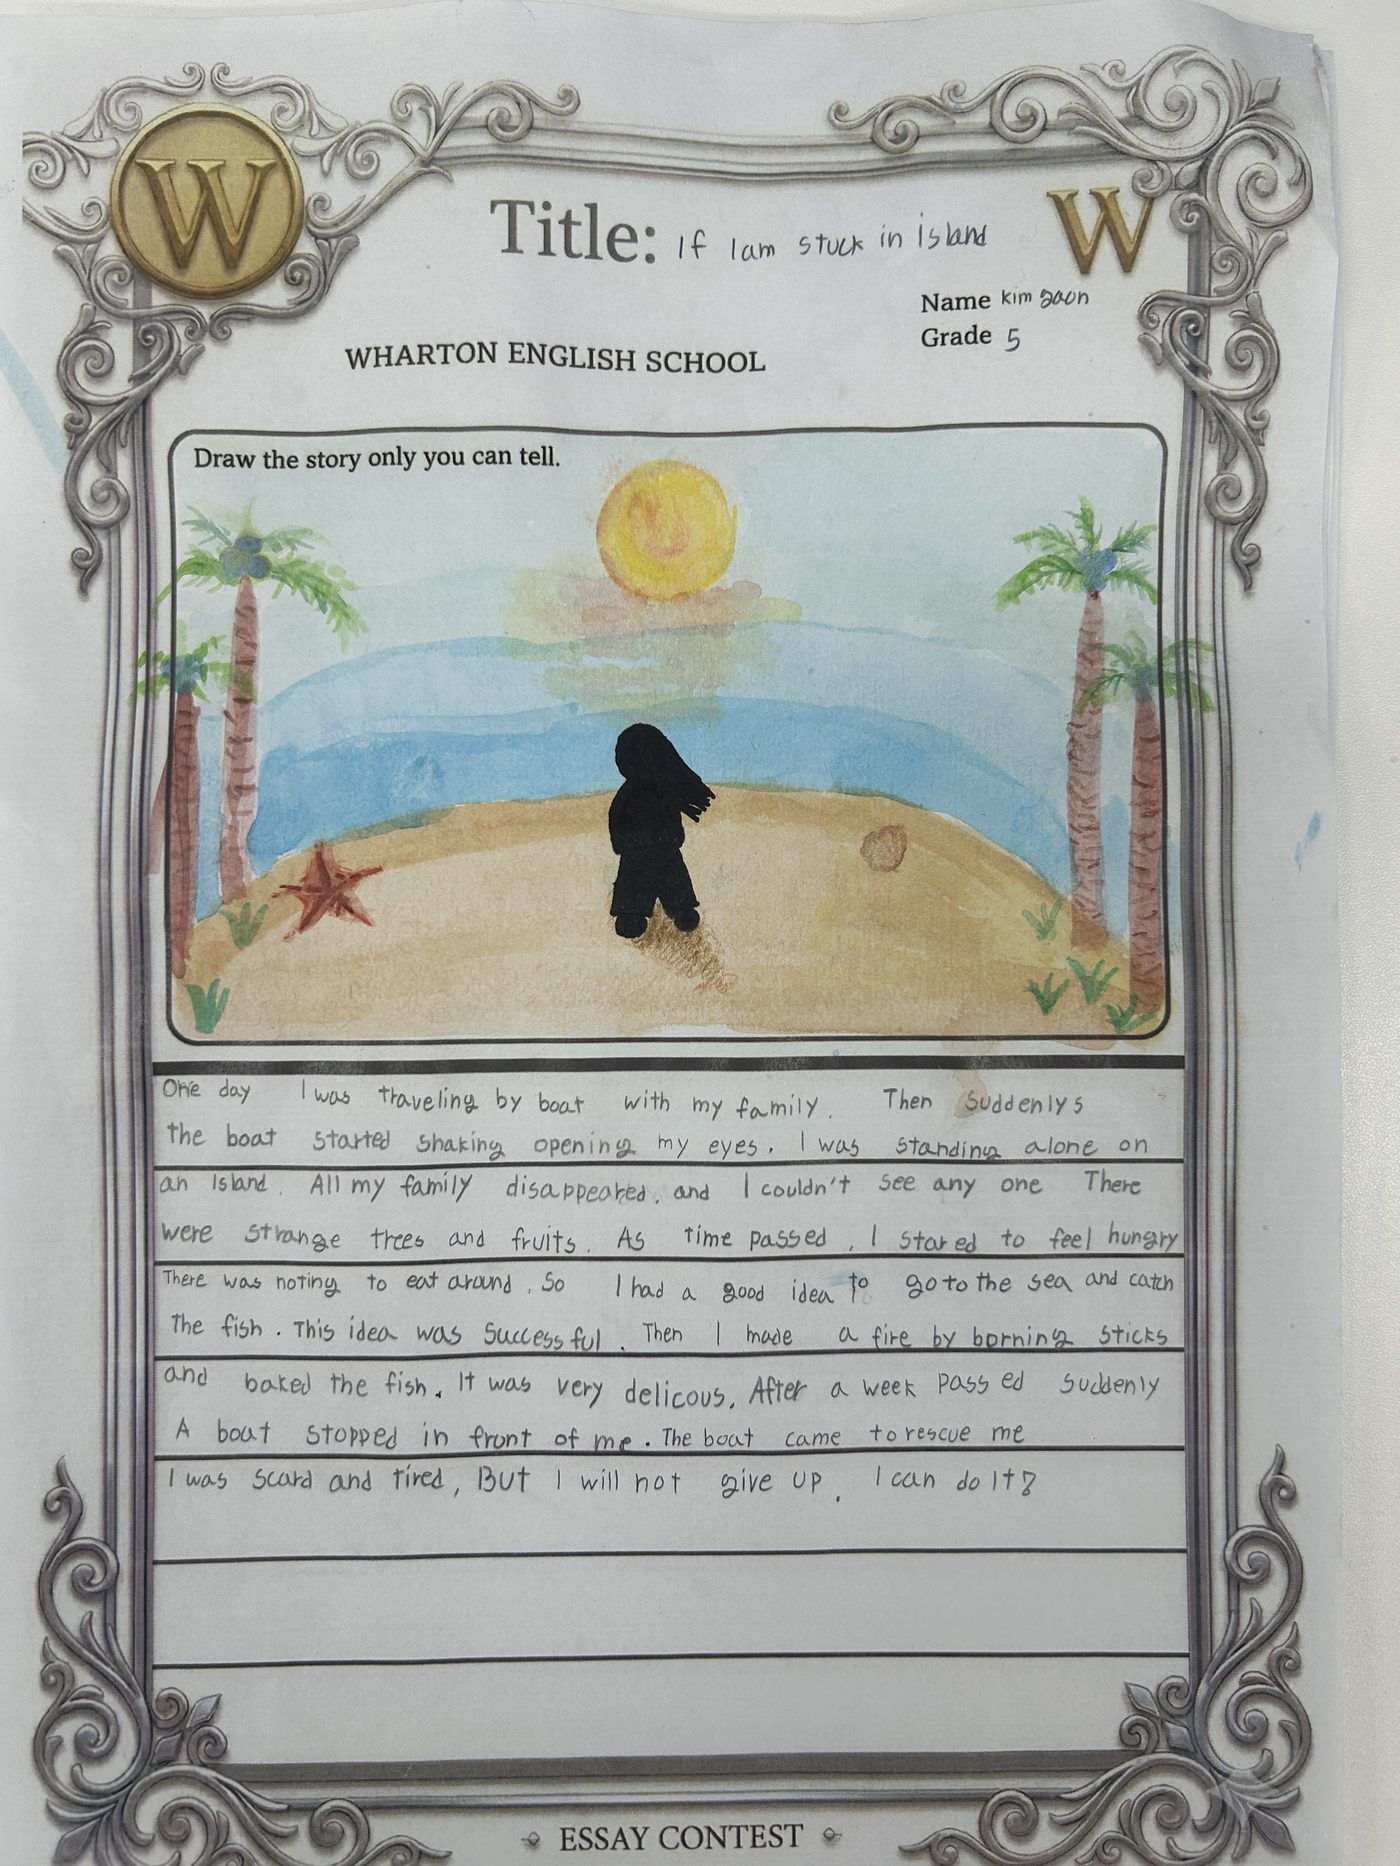 W
W
Title: If Iam stuck in island
Name kim gaon
Grade 5
WHARTON ENGLISH SCHOOL
Draw the story only you can tell.
One day I was traveling by boat with my family. Then suddenlys
the boat started shaking opening my eyes. I was standing alone on
an Island. All my family disappeared. and I couldn't see any one There
were strange trees and fruits. As time passed, I stared to feel hungry
There was noting to eat around. So I had a good idea to go to the sea and catch
the fish. This idea was successful. Then I made a fire by borning sticks
and baked the fish. It was very delicous. After a week passed suddenly
A boat stopped in front of me. The boat came to rescue me
I was scard and tired, But I will not give up. I can do It?
ESSAY CONTEST